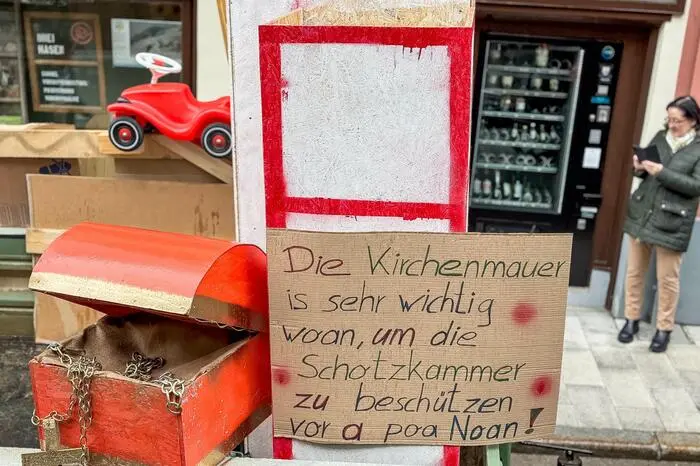 DREI
HASEN
Die Kirchenmauer
is sehr wichtig
woan, um die
Schotzkammer
zu beschützen
vor a poa Noan!